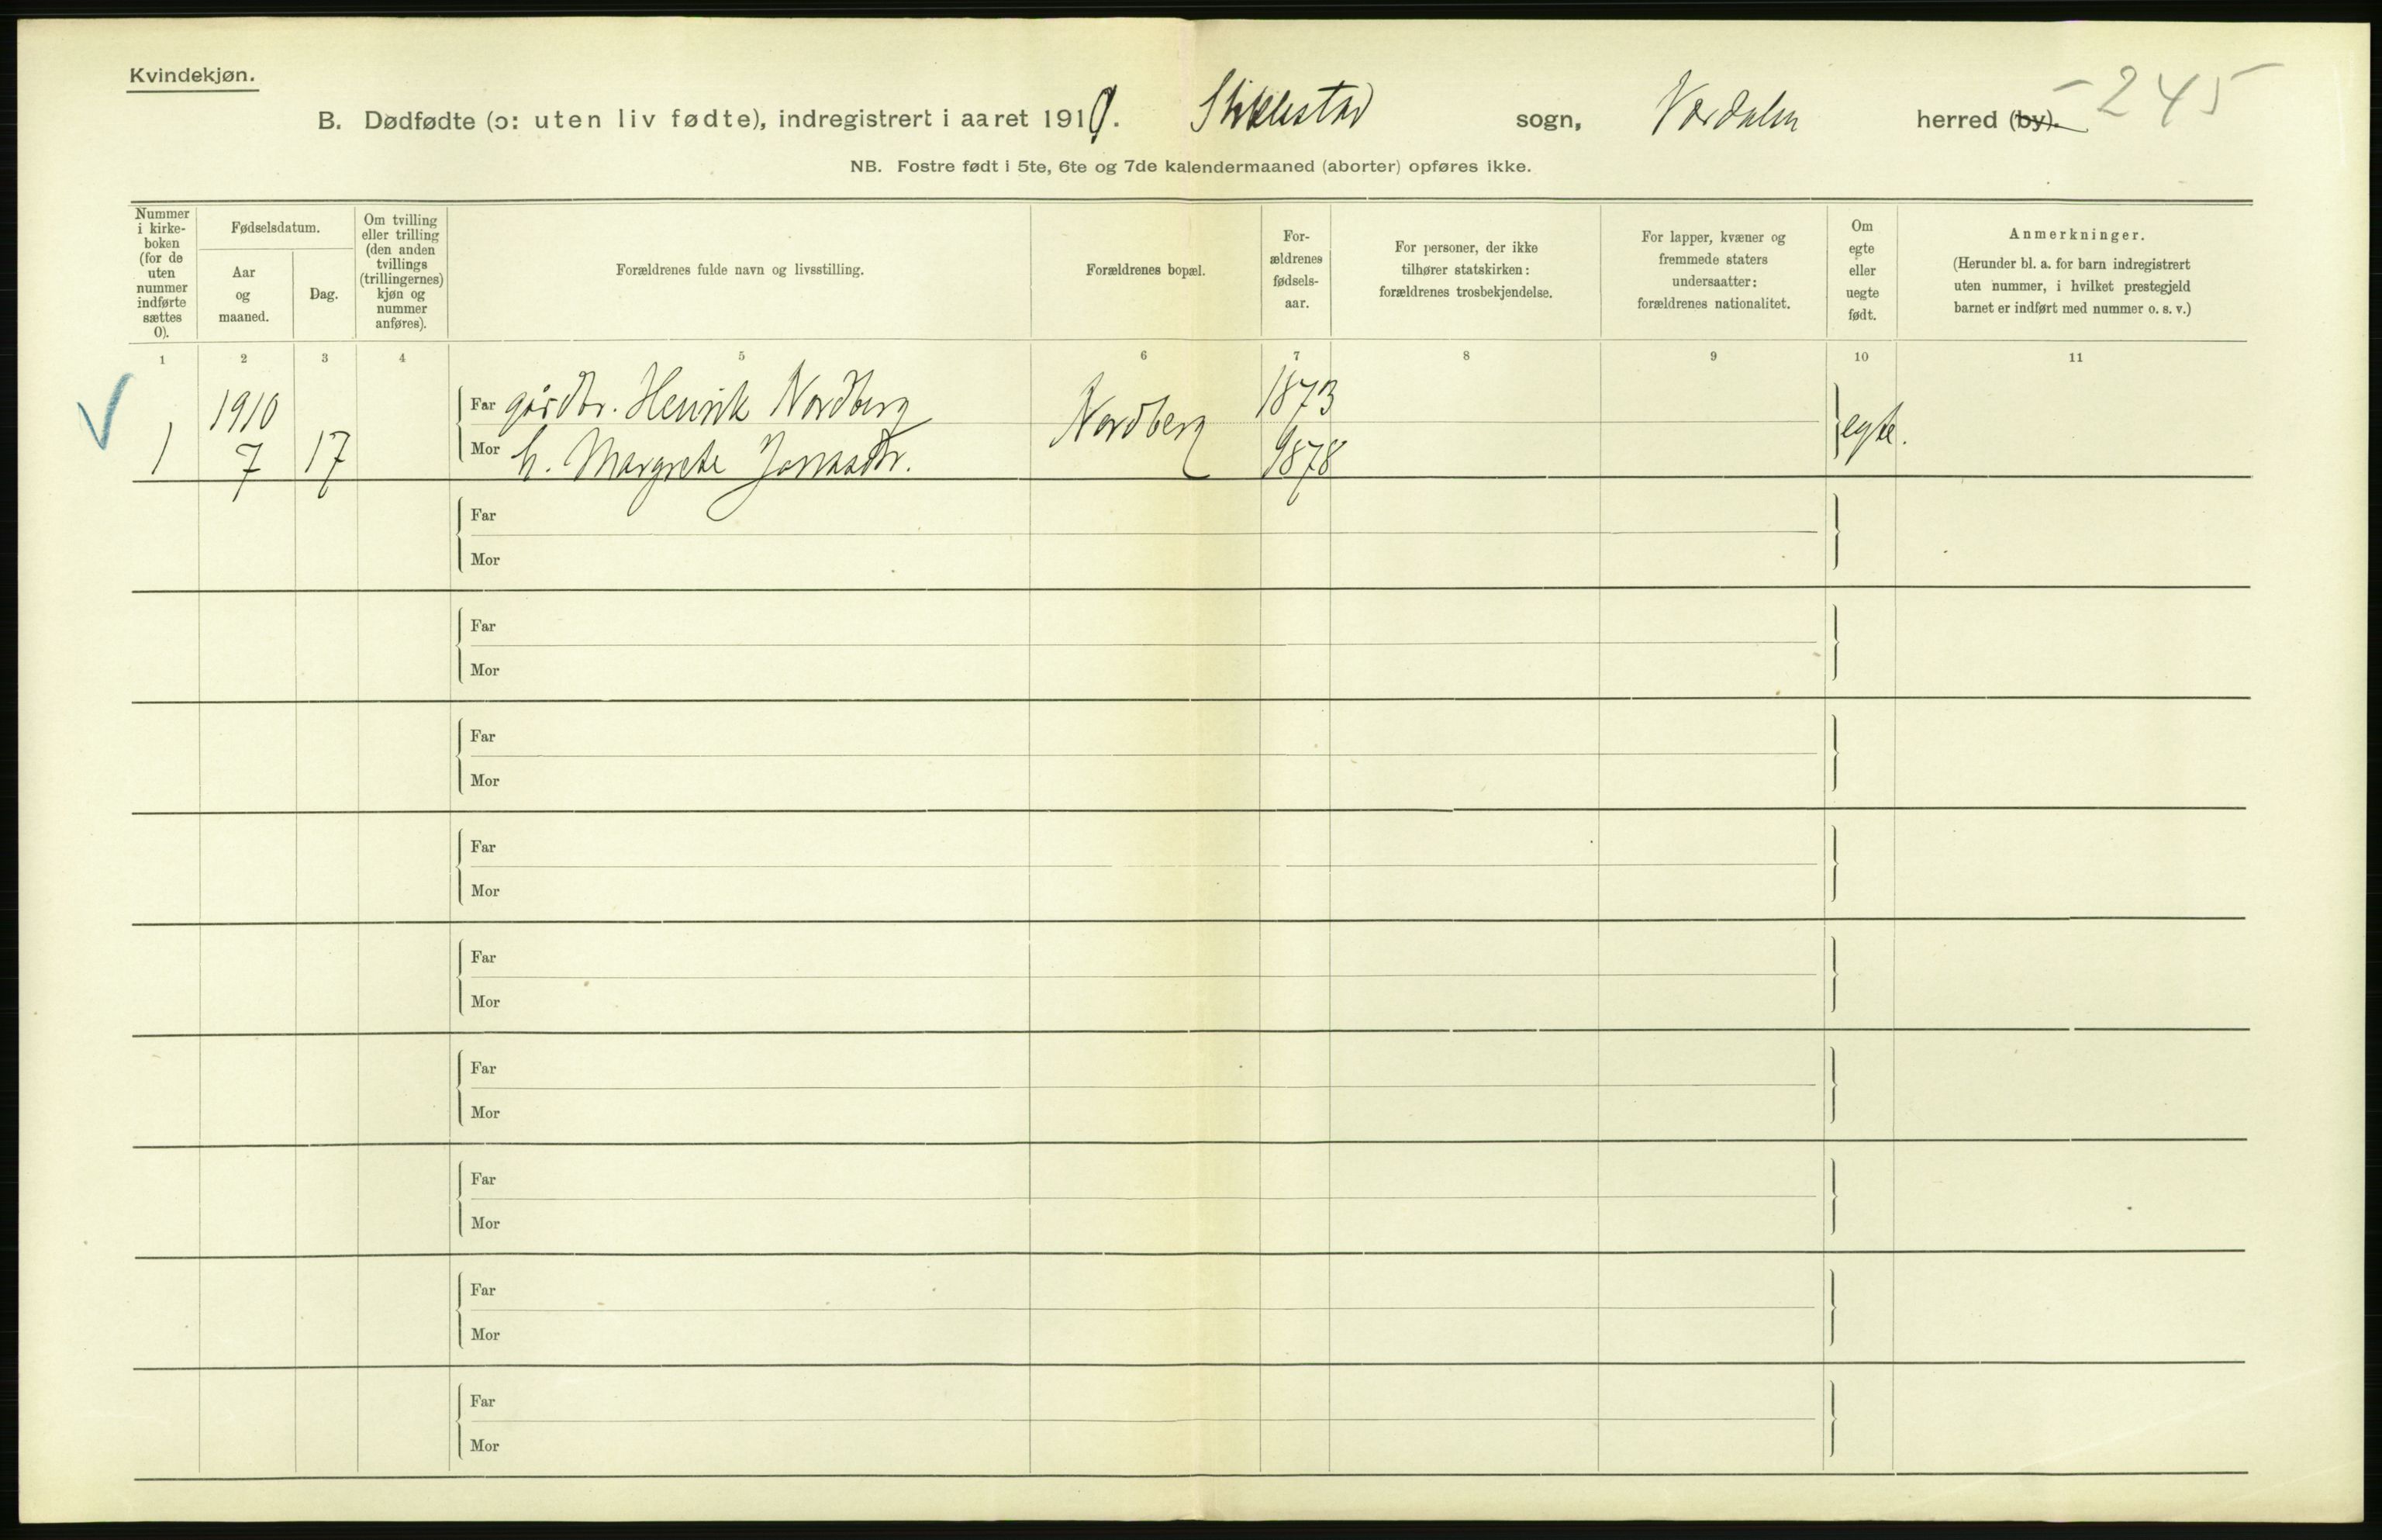 Kvindekjøn.
B. Dødfødte (ɔ: uten liv fødte), indregistrert i aaret 1910. Stiklestad sogn, Værdalen herred (by). - 245
NB. Fostre født i 5te, 6te og 7de kalendermaaned (aborter) opføres ikke.
Nummer
i kirke-
boken
(for de
uten
nummer
indførte
sættes
0).
Fødselsdatum.
Aar
og
maaned.
Dag.
Om tvilling
eller trilling
(den anden
tvillings
(trillingernes)
kjøn og
nummer
anføres).
Forældrenes fulde navn og livsstilling.
Forældrenes bopæl.
For-
ældrenes
fødsels-
aar.
For personer, der ikke
tilhører statskirken:
forældrenes trosbekjendelse.
For lapper, kvæner og
fremmede staters
undersaatter:
forældrenes nationalitet.
Om
egte
eller
uegte
født.
Anmerkninger.
(Herunder bl. a. for barn indregistrert
uten nummer, i hvilket prestegjeld
barnet er indført med nummer o. s. v.)
1 2 3 4 5 6 7 8 9 10 11
1910 Far gårdbr. Henrik Nordberg Nordberg 1873 egte.
1 7 17 Mor h. Margrete Jonasdtr. 1878
Far
Mor
Far
Mor
Far
Mor
Far
Mor
Far
Mor
Far
Mor
Far
Mor
Far
Mor
Far
Mor